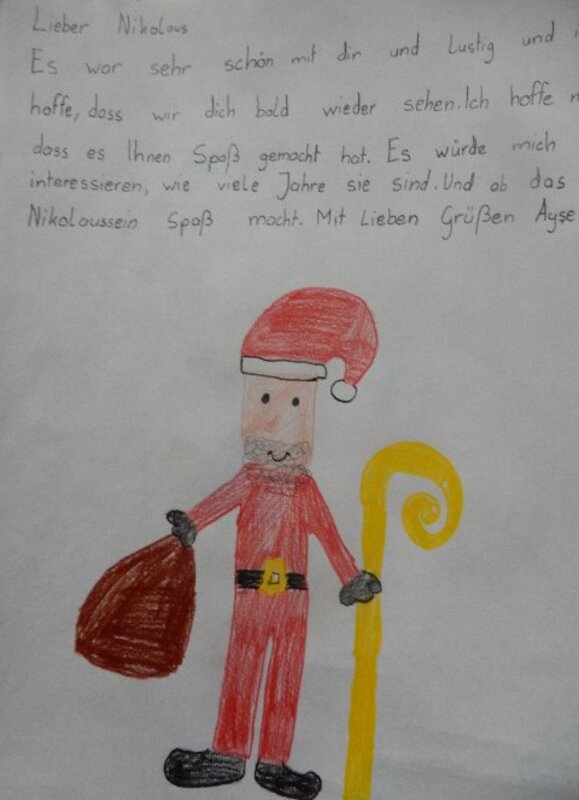 Lieber Nikolaus
Es war sehr schön mit dir und Lustig und
hoffe, dass wir dich bald wieder sehen. Ich hoffe
dass es Ihnen Spaß gemacht hat. Es würde mich
interessieren, wie viele Jahre sie sind. Und ob das
Nikolaussein Spaß macht. Mit Lieben Grüßen Ayse